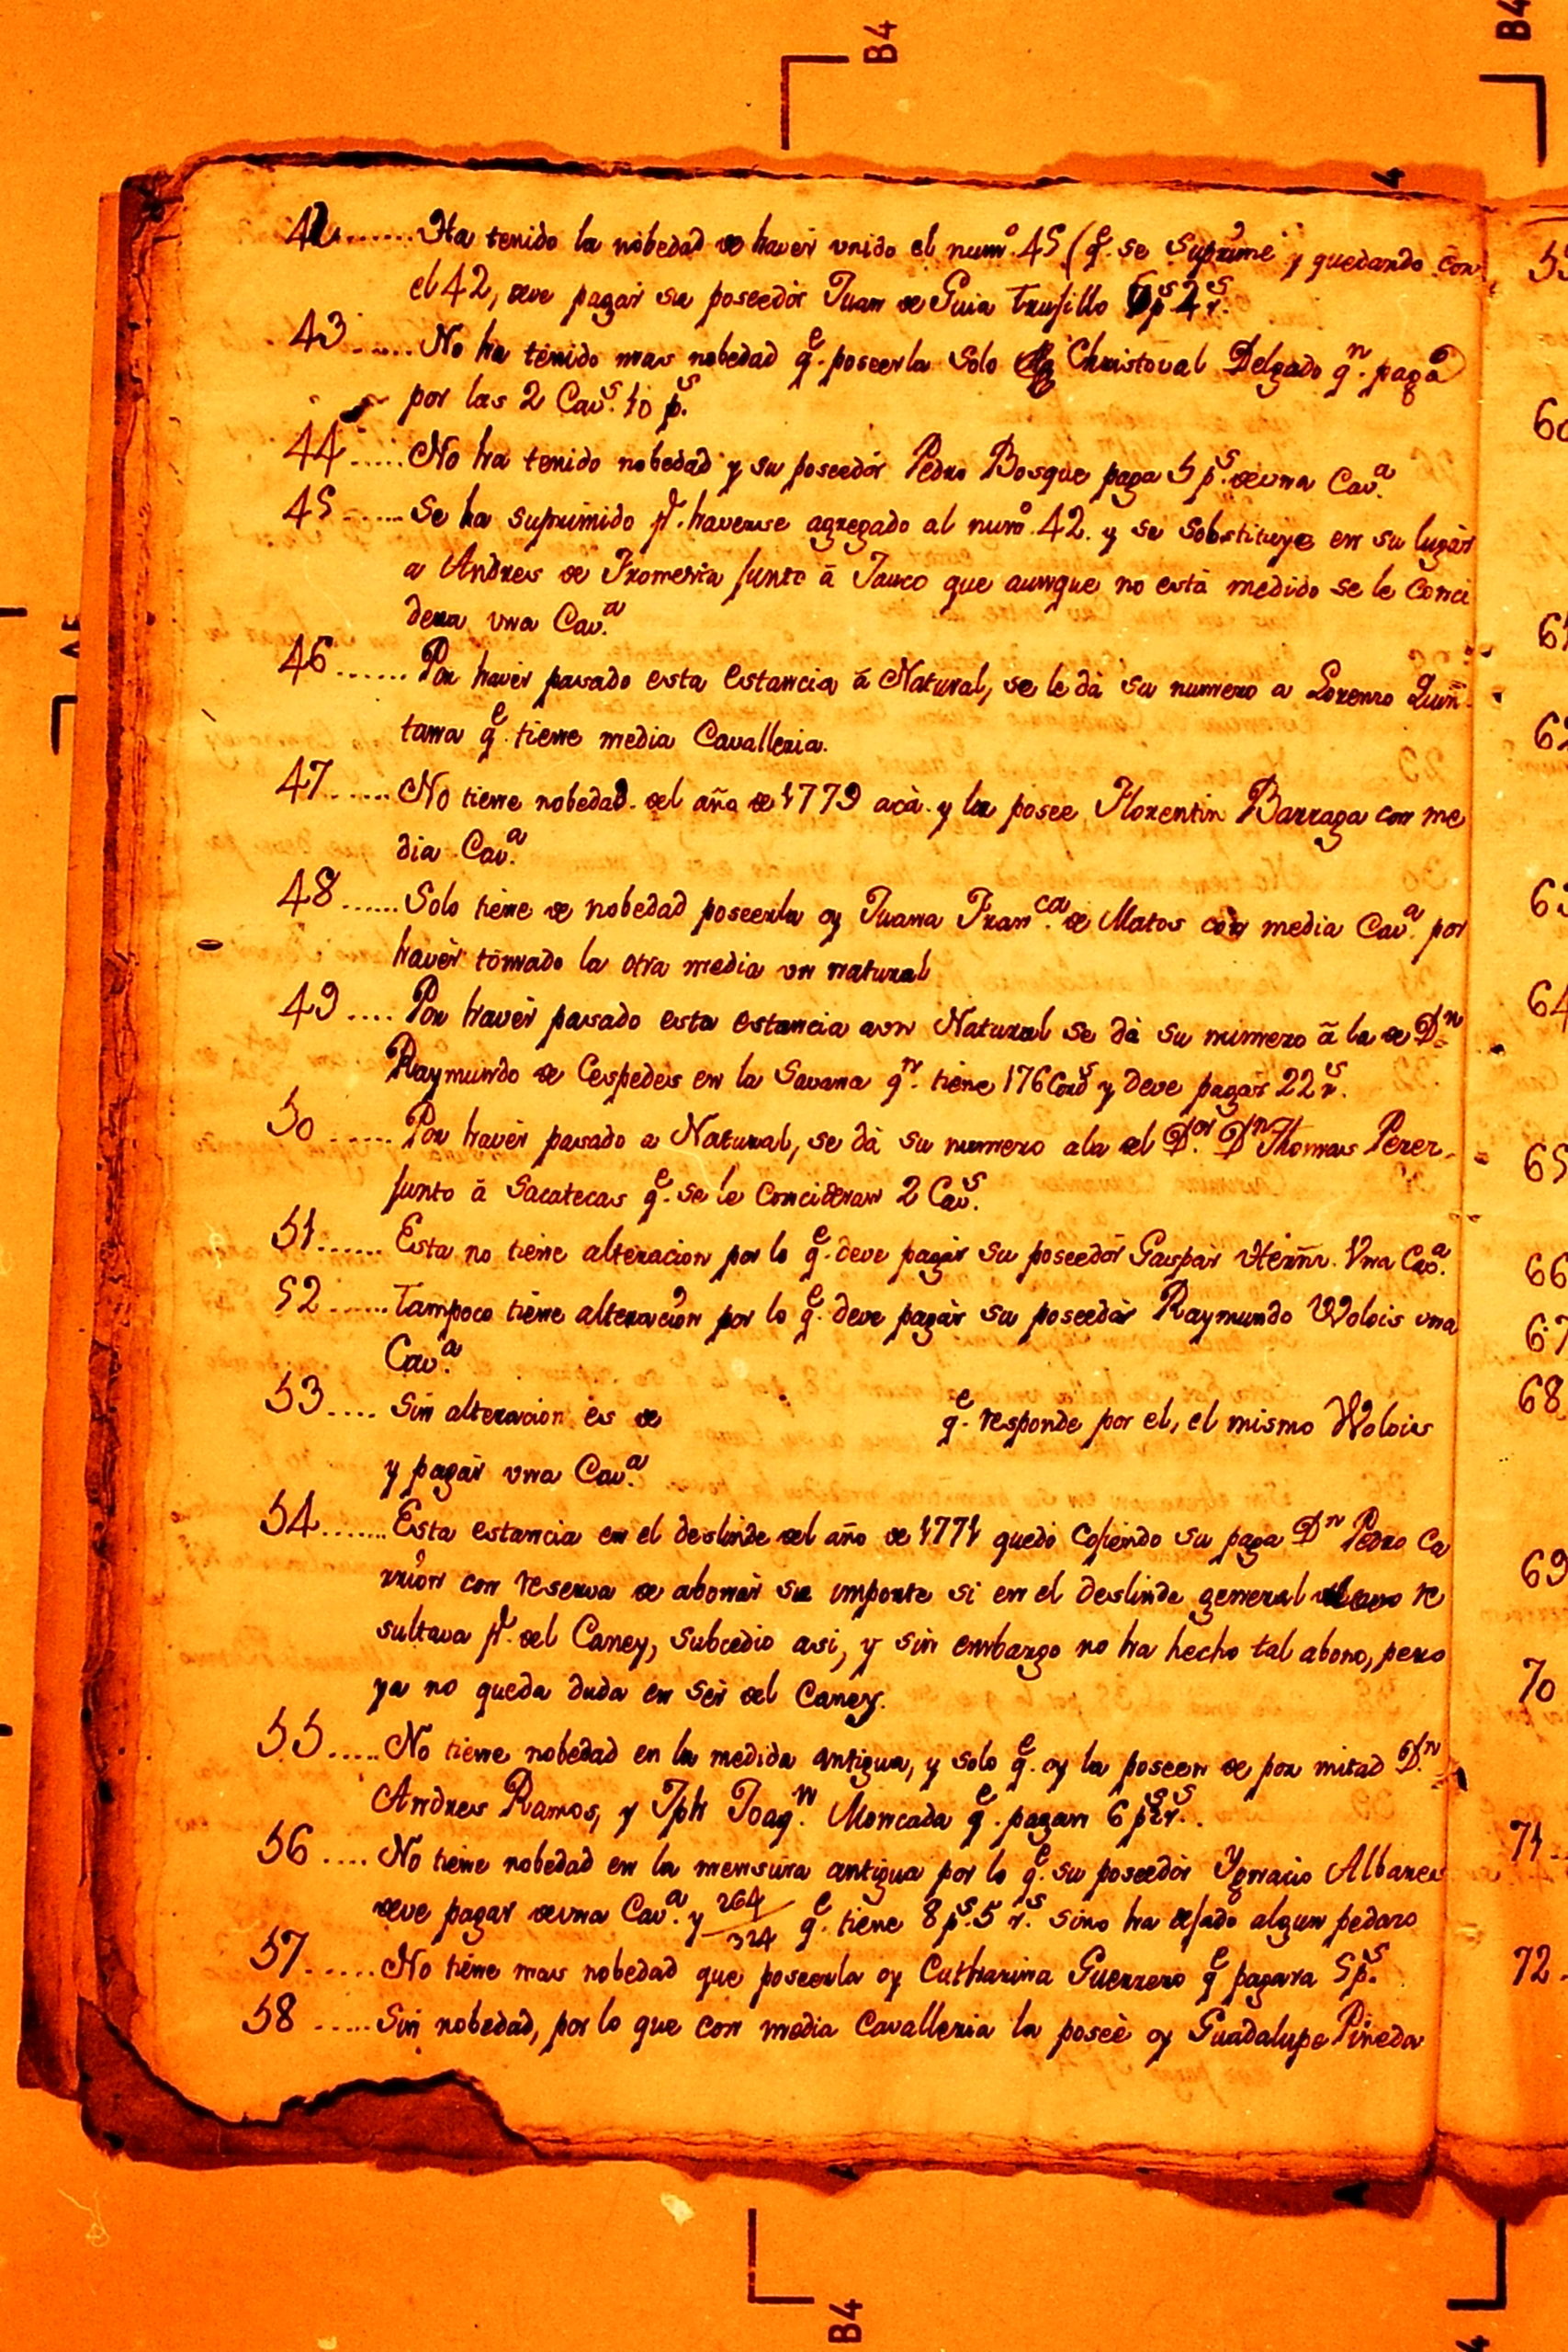 B4
B4
4
42....... Ha tenido la nobedad de haver vnido el num.º 45 (q.e se suprime y quedando con
el 42, deve pagar su poseedor Juan de Guia Trusillo p.s 2 r.s
43...... No ha tenido mas nobedad q.e poseerla solo Christoval Delgado q.n paga
por las 2 Cav.s 10 p.s
44..... No ha tenido nobedad y su poseedor Pedro Bosque paga 5 p.s de una Cav.a
45...... Se ha suprimido p.r haverse agregado al num.º 42. y se sobstituye en su lugar
a Andres de Fromesta junto ā Jauco que aunque no está medido se le conci
dera vna Cav.a
46....... Por haver pasado esta Estancia ā Natural, se le dá su numero a Lorenzo Quin
tana q.e tiene media Cavalleria.
47...... No tiene nobedad del año de 1779 acà y la posee Florentin Barraga con me
dia Cav.a
48...... Solo tiene de nobedad poseerla oy Juana Fran.ca de Matos con media Cav.a por
haver tomado la otra media vn natural
49.... Por haver pasado esta estancia a vn Natural se dá su numero ā la de D.n
Raymundo de Cespedes en la Savana q.n tiene 176 Cord.s y deve pagar 22 r.s
50...... Por haver pasado a Natural, se dá su numero a la del D.or D.n Thomas Perez
junto ā Sacatecas q.e se le concideran 2 Cav.s
51...... Esta no tiene alteracion por lo q.e deve pagar su poseedor Gaspar Herñz. Vna Cav.a
52...... Tampoco tiene alteracion por lo q.e deve pagar su poseedor Raymundo Wolois vna
Cav.a
53.... Sin alteracion es de q.e responde por el, el mismo Wolois
y pagar vna Cav.a
54....... Esta estancia en el deslinde del año de 1771 quedó Cojiendo su paga D.n Pedro Ca
rrion con reserva de abonar su importe si en el deslinde general re
sultava p.r del Caney, subcedio asi, y sin embargo no ha hecho tal abono, pero
ya no queda duda en ser del Caney.
55..... No tiene nobedad en la medida antigua, y solo q.e oy la poseen de por mitad D.n
Andres Ramos, y Jph Joaq.n Moncada q.e pagan 6 p.s 2 r.s
56.... No tiene nobedad en la mensura antigua por lo q.e su poseedor Ygnacio Albares
deve pagar de una Cav.a y 264/324 q.e tiene 8 p.s 5 r.s sino ha dejado algun pedaso
57..... No tiene mas nobedad que poseerla oy Catharina Guerrero q.e pagara 5 p.s
58..... Sin nobedad, por lo que con media Cavalleria la poseè oy Guadalupe Pineda
60
61
62
63
64
65
66
67
68
69
70
71
72
B4